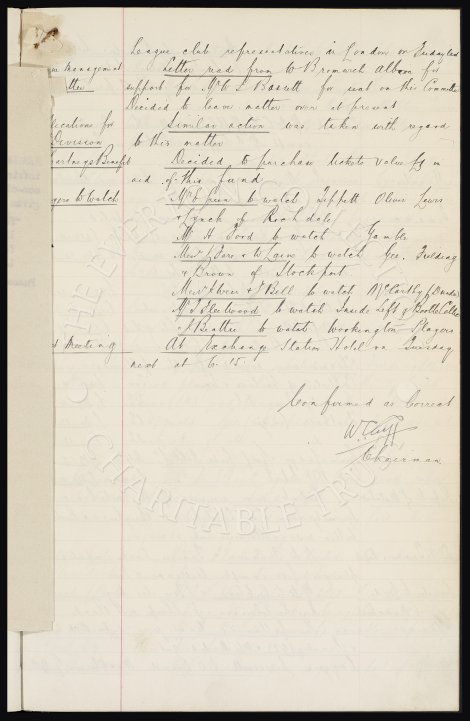 League club representatives in London on Friday last
Management
Letter read from W Bromwich Albion for
support for Mr C L Bassett for seat on this Committee
Decided to leave matter over at present
for
Similar action was taken with regard
Division
to this matter
Benefit
Decided to purchase tickets value £1 in
aid of this fund
to Watch
Mr E Green to watch Tippett Oliver Laws
& Lynch of Rochdale
Mr H Ford to watch Gamble
to watch Geo. Fielding
& Brown of Stockport
& J Bell to watch McCarthy
Mr J Fleetwood to watch Inside Left of Bootle Celtic
J Beattie to watch Workington Players
Meeting
At Exchange Station Hotel on Tuesday
next at 6.15
Confirmed as Correct
W. C. Cuff
Chairman
THE EVERTON
CHARITABLE TRUST